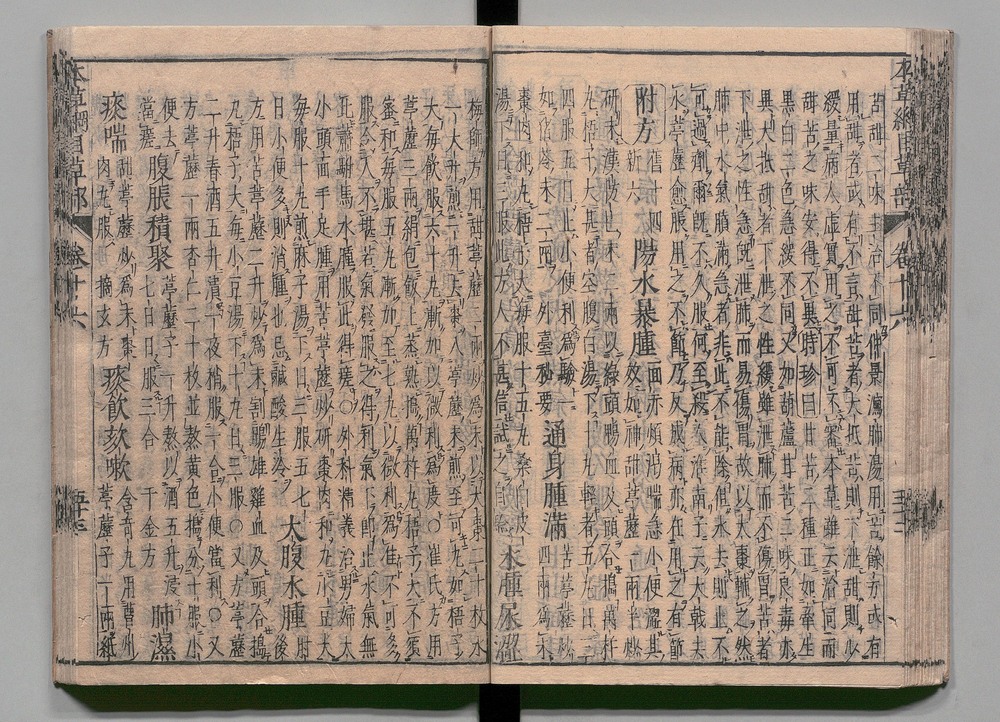 苦甜二味主治不同仲景瀉肺湯用苦餘方或有
用甜者或有不言甜苦者大抵苦則下泄甜則少
緩量病人虛實用之不可不審本草雖云治同而
甘苦之味安得不異時珍曰甘苦二種正如牽牛
黑白二色急緩不同又如葫蘆甘苦二味良毒亦
異大抵甜者下泄之性緩雖泄肺而不傷胃苦者
下泄之性急既泄肺而易傷胃故以大棗輔之然
肺中水氣膹滿急者非此不能除但水去則止不
可過劑爾既不久服何至殺人淮南子云大戟去
水葶藶愈脹用之不節乃反成病亦在用之有節
附方 舊 四新六 陽水暴腫 面赤煩渴喘急小便澀其
效如神甜葶藶一兩半炒
研末漢防己末二兩以綠頭鴨血及頭合搗萬杵
丸梧子大甚者空腹白湯下十丸輕者五丸日三
四服五日止小便利爲驗 通身腫滿 苦葶藶炒
四兩爲末
棗肉和丸梧子大每服十五丸桑白皮
湯下日三服此方人不甚信試之自驗 水腫尿澀
梅師方用甜葶藶二兩炒爲末以大棗二十枚水
一大升煎一小升去棗入葶藶末煎至可丸如梧子
大每飲服六十丸漸加以微利爲度〇崔氏方用
葶藶三兩絹包飯上蒸熟搗萬杵丸梧子大不須
蜜和每服五丸漸加至七丸以微利爲佳不可多
服令人不堪若氣發服之得利氣下即止水氣無
比蕭駙馬水腫服此得瘥〇外科精義治男婦大
小頭面手足腫用苦葶藶炒研棗肉和丸小豆大
每服十丸煎麻子湯下日三服五七 大腹水腫 肘後
日小便多則消腫也忌鹹酸生冷
方用苦葶藶二升炒爲末割鵾雄雞血及頭合搗
丸梧子大每小豆湯下十丸日三服〇又方葶藶
二升春酒五升漬一夜稍服一合小便當利〇又
方葶藶一兩杏仁二十枚並熬黃色搗分十服小
便去
當瘥 腹脹積聚 葶藶子一升熬以酒五升浸
七日日服三合 千金方 肺濕
痰喘 甜葶藶炒爲末棗
肉丸服 摘玄方 痰飲欬嗽 含膏丸用曹州
葶藶子一兩紙
本草綱目草部 卷十六